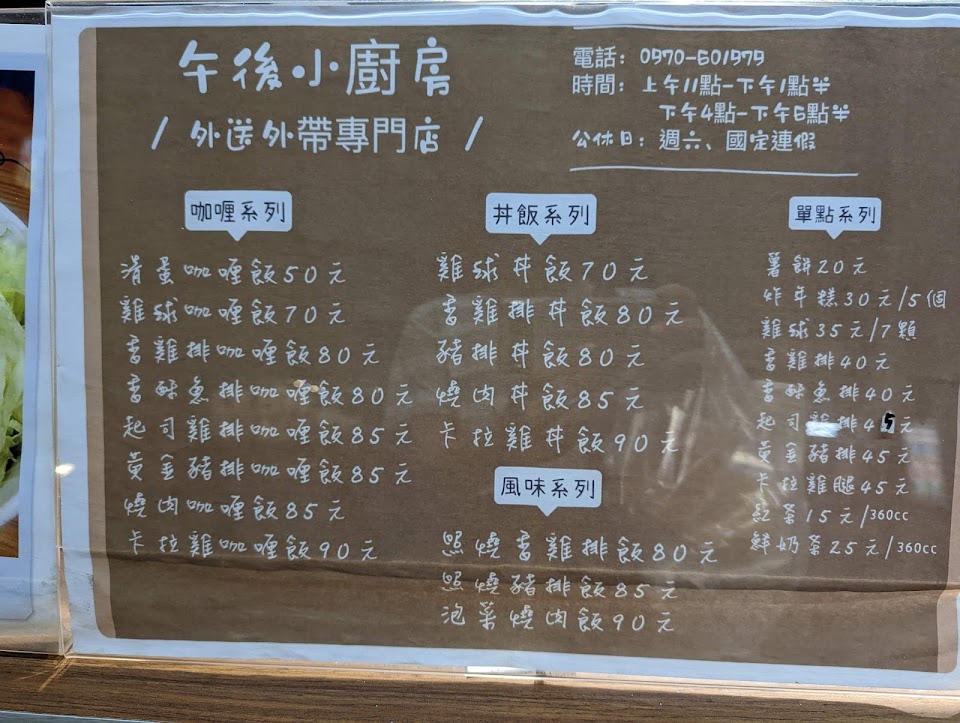 午後小廚房
/ 外送外帶專門店 /
電話：0970-601979
時間：上午11點-下午1點半
下午4點-下午6點半
公休日：週六、國定連假
咖喱系列
滑蛋咖喱飯50元
雞球咖喱飯70元
香雞排咖喱飯80元
香酥魚排咖喱飯80元
起司雞排咖喱飯85元
黃金豬排咖喱飯85元
燒肉咖喱飯85元
卡拉雞咖喱飯90元
丼飯系列
雞球丼飯70元
香雞排丼飯80元
豬排丼飯80元
燒肉丼飯85元
卡拉雞丼飯90元
風味系列
照燒香雞排飯80元
照燒豬排飯85元
泡菜燒肉飯90元
單點系列
薯餅20元
炸年糕30元/5個
雞球35元/7顆
香雞排40元
香酥魚排40元
起司雞排45元
黃金豬排45元
卡拉雞腿45元
紅茶15元/360cc
鮮奶茶25元/360cc